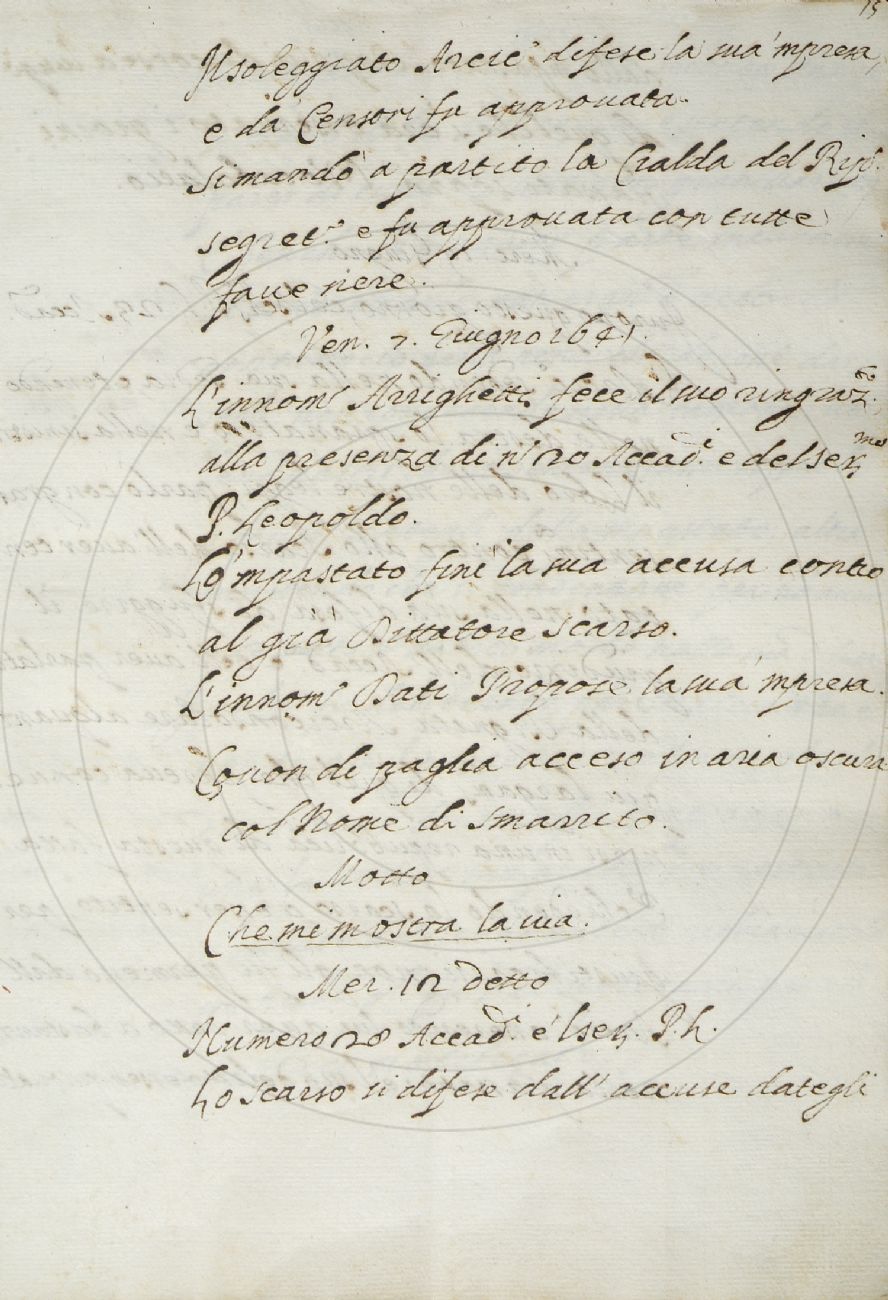 15
Il soleggiato Arcic.º difese la sua 'mpresa,
e da Censori fu approuata.
si mandò a partito la Cialda del Rip.º
segret.º e fu approuata con tutte
faue nere.
Ven. 7. Giugno 1641.
L'innom.º Arrighetti fece il suo ringraz.to
alla presenza di nº 20 Accad.i e del ser.mo
P. Leopoldo.
Lo 'mpastato finì la sua accusa contro
al già Dittatore scarso.
L'innom.º Dati Propose la sua 'mpresa.
Couon di paglia acceso in aria oscura
col Nome di smarrito.
Motto
Che mi mostra la uia.
Mer. 12 detto
Numero 28 Accad.i e 'l ser. P. L.
Lo scarso si difese dall' accuse dategli